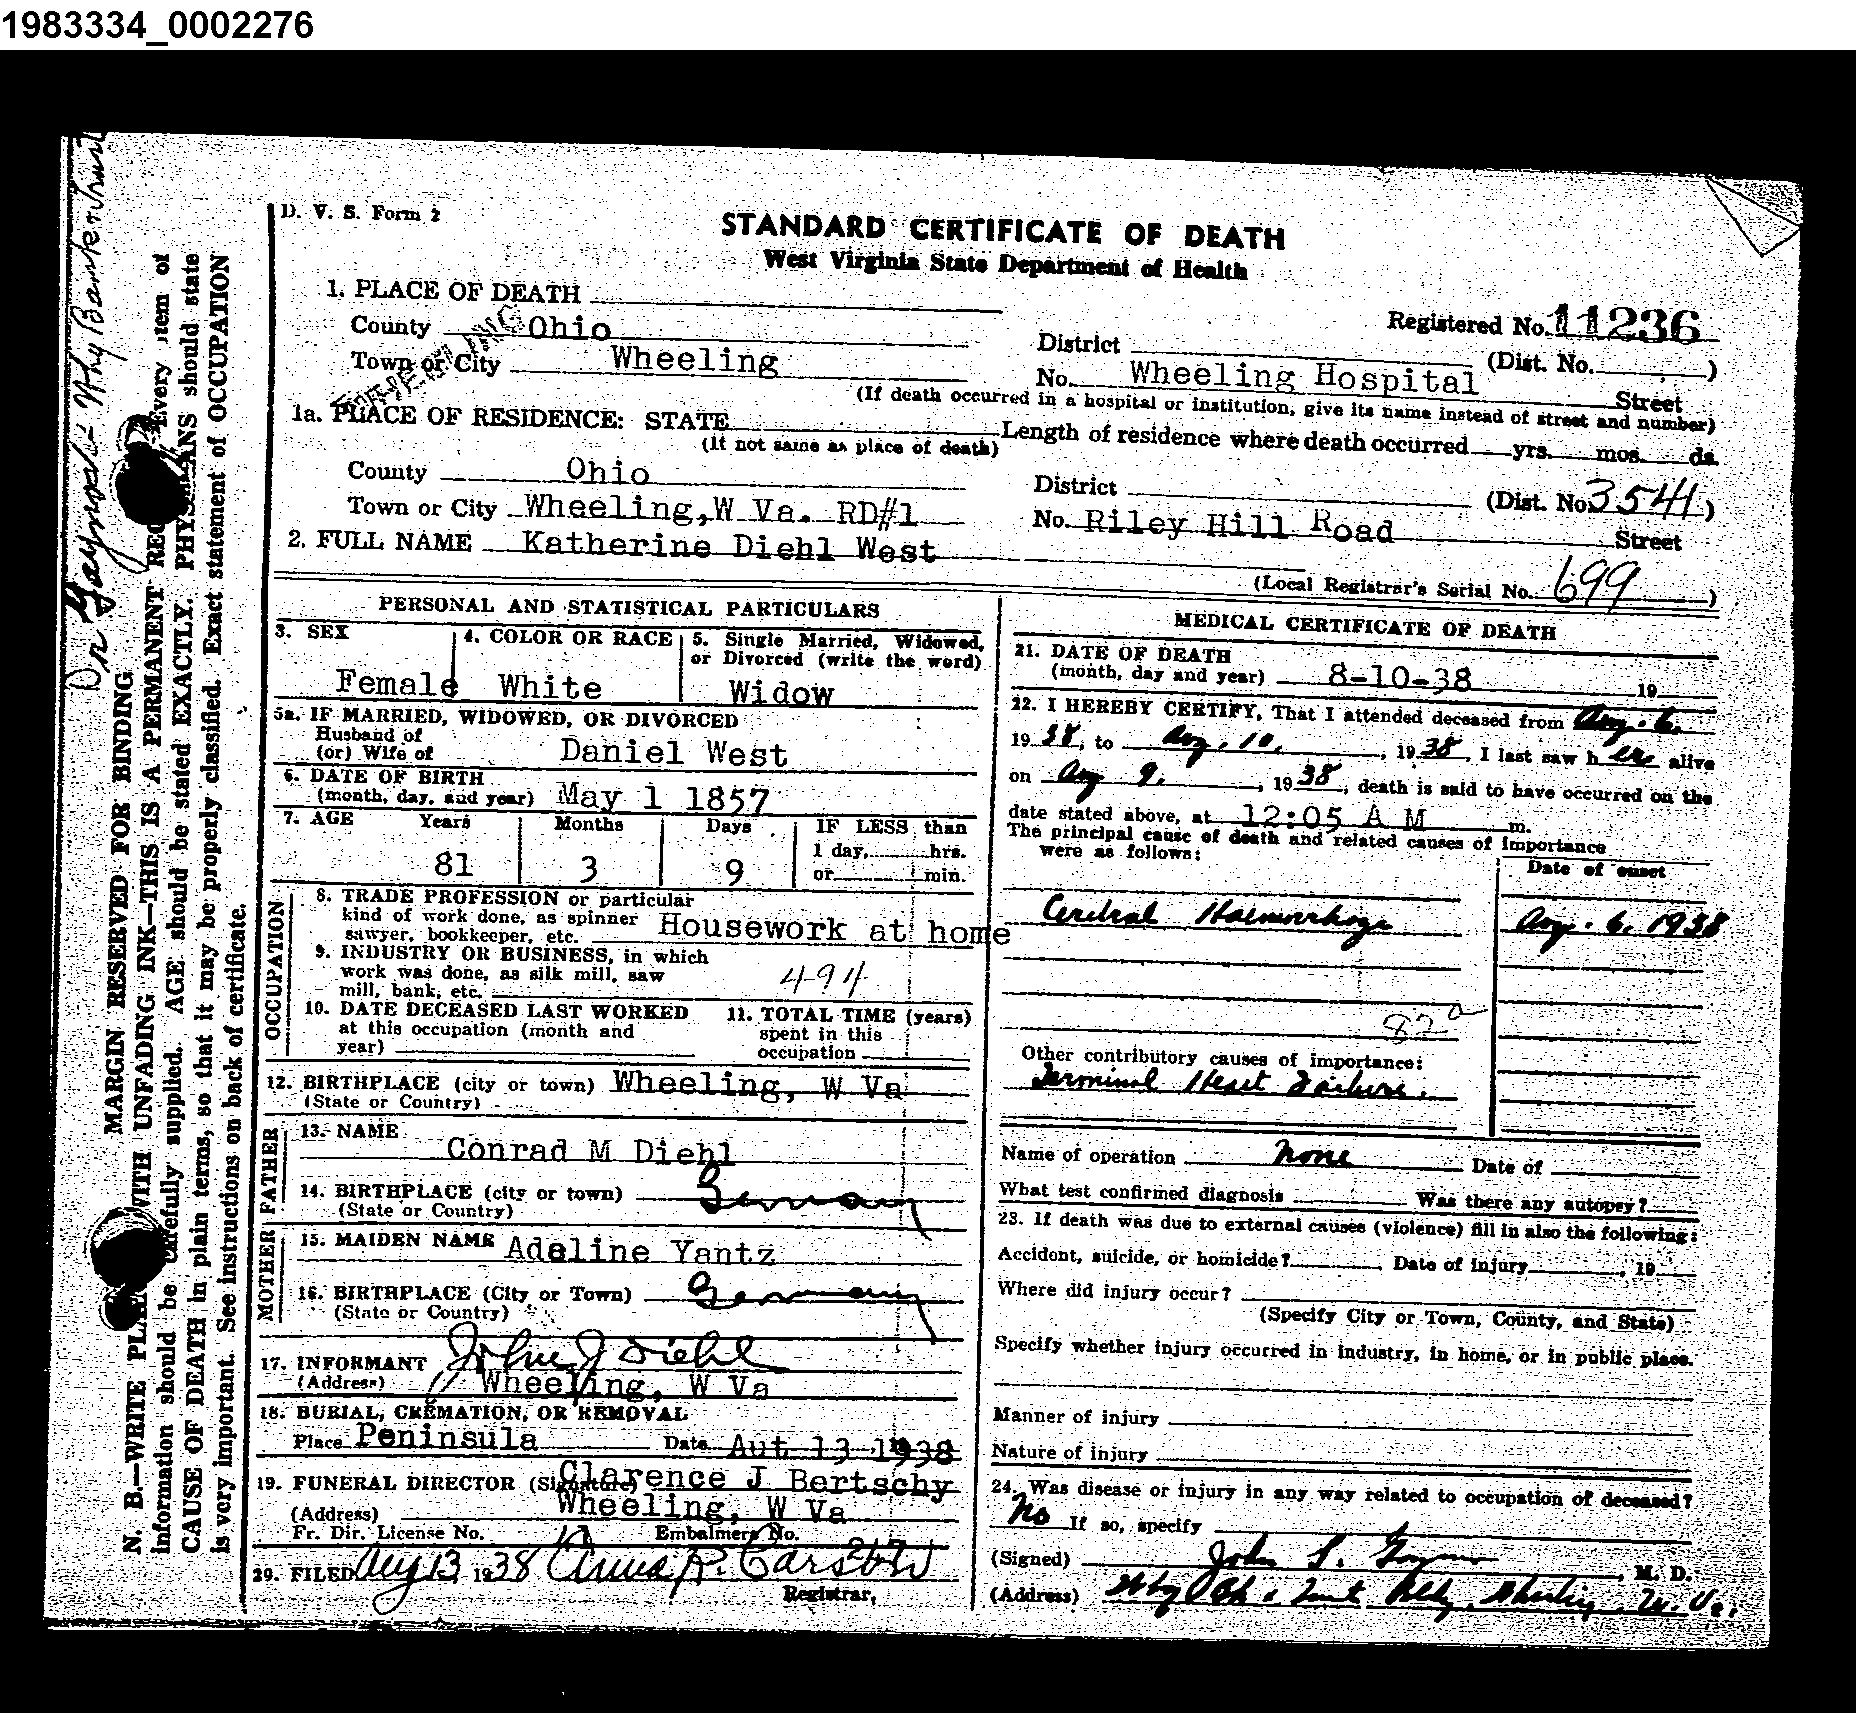 1983334_0002276
D. V. S. Form 2
STANDARD CERTIFICATE OF DEATH
West Virginia State Department of Health
1. PLACE OF DEATH
Registered No. 11236
County Ohio
District (Dist. No. )
Town or City Wheeling
No. Wheeling Hospital Street
(If death occurred in a hospital or institution, give its name instead of street and number)
1a. PLACE OF RESIDENCE: STATE
(If not same as place of death)
Length of residence where death occurred yrs. mos. ds.
County Ohio
District (Dist. No. 3541)
Town or City Wheeling, W Va. RD#1
No. Riley Hill Road Street
2. FULL NAME Katherine Diehl West
(Local Registrar's Serial No. 699)
PERSONAL AND STATISTICAL PARTICULARS
3. SEX Female
4. COLOR OR RACE White
5. Single Married, Widowed, or Divorced (write the word) Widow
5a. IF MARRIED, WIDOWED, OR DIVORCED
Husband of
(or) Wife of Daniel West
6. DATE OF BIRTH
(month, day, and year) May 1 1857
7. AGE Years Months Days IF LESS than
1 day, hrs.
81 3 9 or min.
OCCUPATION
8. TRADE PROFESSION or particular
kind of work done, as spinner
sawyer, bookkeeper, etc. Housework at home
9. INDUSTRY OR BUSINESS, in which
work was done, as silk mill, saw
mill, bank, etc. 494
10. DATE DECEASED LAST WORKED
at this occupation (month and
year)
11. TOTAL TIME (years)
spent in this
occupation
12. BIRTHPLACE (city or town) Wheeling, W Va
(State or Country)
FATHER
13. NAME Conrad M Diehl
14. BIRTHPLACE (city or town) Germany
(State or Country)
MOTHER
15. MAIDEN NAME Adeline Yantz
16. BIRTHPLACE (City or Town) Germany
(State or Country)
17. INFORMANT John J Diehl
(Address) Wheeling, W Va
18. BURIAL, CREMATION, OR REMOVAL
Place Peninsula Date Aut 13 1938
19. FUNERAL DIRECTOR (Signature) Clarence J Bertschy
(Address) Wheeling, W Va
Fr. Dir. License No. Embalmers No.
20. FILED Aug 13, 1938 Anna R.
Registrar,
MEDICAL CERTIFICATE OF DEATH
21. DATE OF DEATH
(month, day and year) 8-10-38 19
22. I HEREBY CERTIFY, That I attended deceased from Aug. 6,
1938, to Aug, 10, , 1938, I last saw her alive
on Aug 9, , 1938, death is said to have occurred on the
date stated above, at 12:05 A M m.
The principal cause of death and related causes of importance
were as follows:
Date of onset
Cerebral Haemorrhage Aug. 6, 1938
82a
Other contributory causes of importance:
Terminal Heart Failure.
Name of operation None Date of
What test confirmed diagnosis Was there any autopsy?
23. If death was due to external causes (violence) fill in also the following:
Accident, suicide, or homicide? Date of injury , 19
Where did injury occur?
(Specify City or Town, County, and State)
Specify whether injury occurred in industry, in home, or in public place.
Manner of injury
Nature of injury
24. Was disease or injury in any way related to occupation of deceased?
No If so, specify
(Signed) John , M. D.
(Address) Wheeling, W. Va.
MARGIN RESERVED FOR BINDING
N. B.—WRITE WITH UNFADING INK—THIS IS A PERMANENT Every item of
information should be carefully supplied. AGE should be stated EXACTLY. PHYSICIANS should state
CAUSE OF DEATH in plain terms, so that it may be properly classified. Exact statement of OCCUPATION
is very important. See instructions on back of certificate.